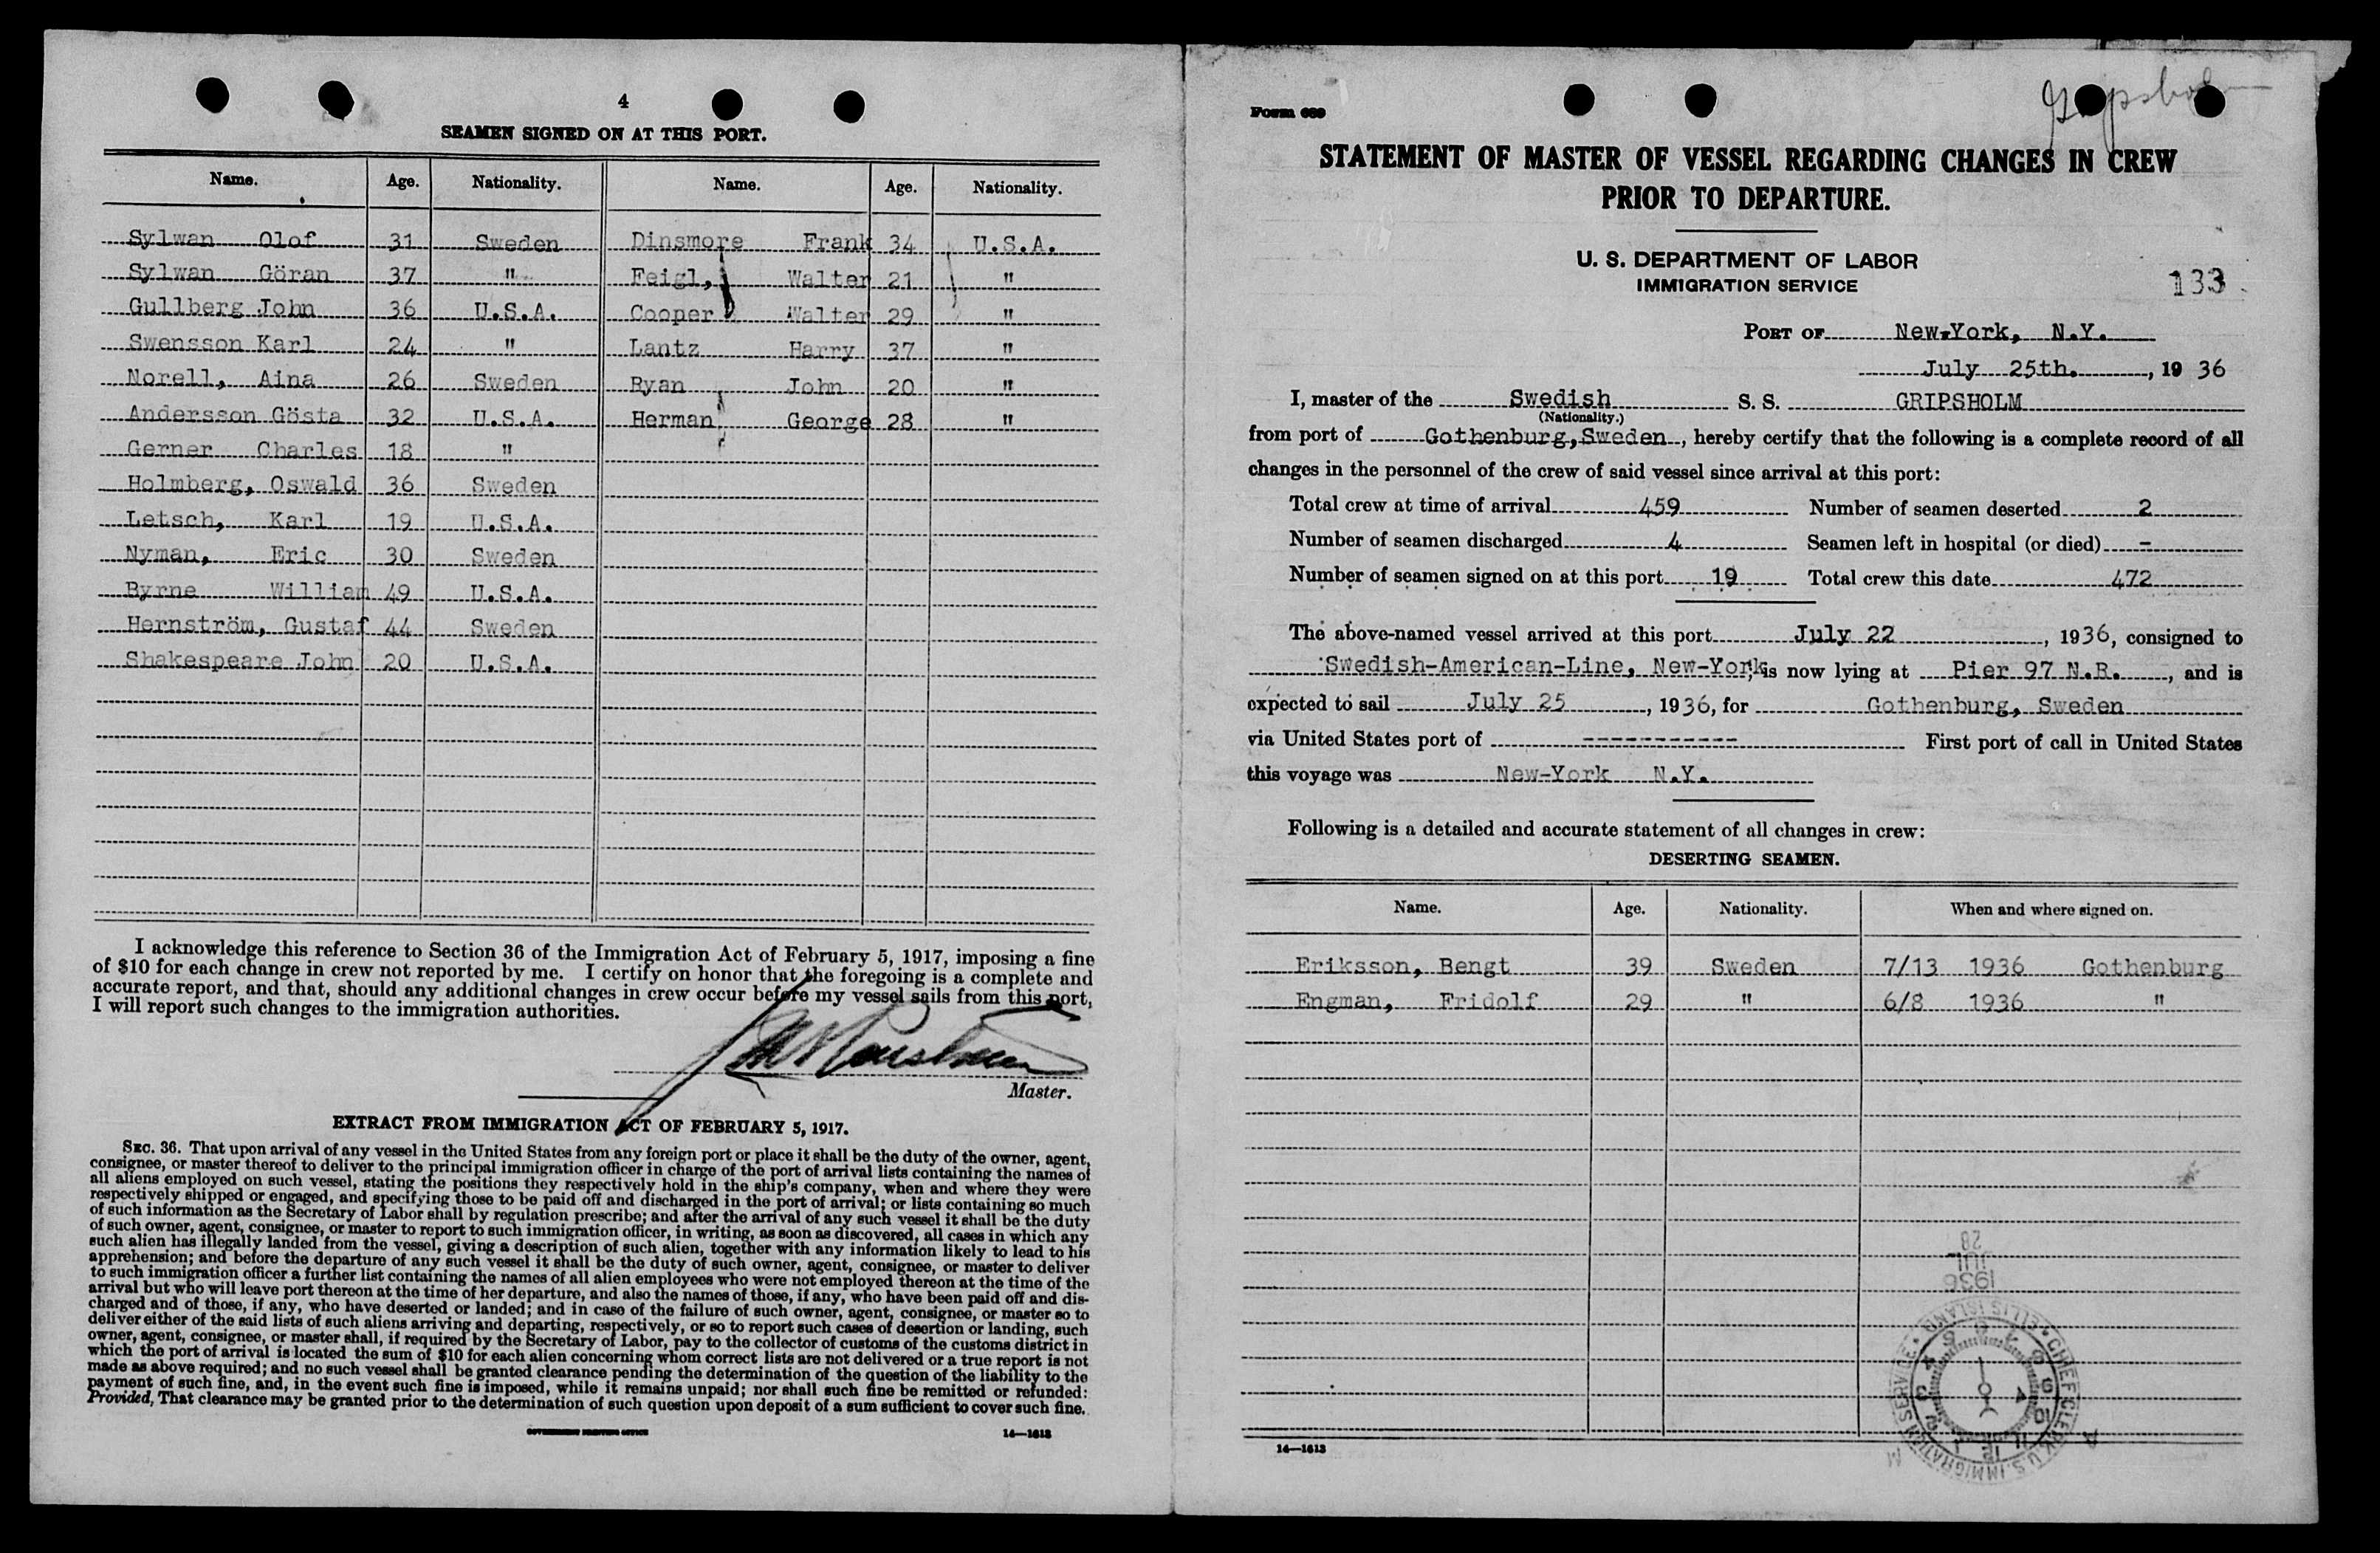 4
SEAMEN SIGNED ON AT THIS PORT.
Name. Age. Nationality. Name. Age. Nationality.
Sylwan Olof 31 Sweden Dinsmore Frank 34 U.S.A.
Sylwan Göran 37 " Feigl, Walter 21 "
Gullberg John 36 U.S.A. Cooper Walter 29 "
Swensson Karl 24 " Lantz Harry 37 "
Norell, Aina 26 Sweden Ryan John 20 "
Andersson Gösta 32 U.S.A. Herman George 28 "
Gerner Charles 18 "
Holmberg, Oswald 36 Sweden
Letsch, Karl 19 U.S.A.
Nyman, Eric 30 Sweden
Byrne William 49 U.S.A.
Hernström, Gustaf 44 Sweden
Shakespeare John 20 U.S.A.
I acknowledge this reference to Section 36 of the Immigration Act of February 5, 1917, imposing a fine
of $10 for each change in crew not reported by me. I certify on honor that the foregoing is a complete and
accurate report, and that, should any additional changes in crew occur before my vessel sails from this port,
I will report such changes to the immigration authorities.
Master.
EXTRACT FROM IMMIGRATION ACT OF FEBRUARY 5, 1917.
SEC. 36. That upon arrival of any vessel in the United States from any foreign port or place it shall be the duty of the owner, agent,
consignee, or master thereof to deliver to the principal immigration officer in charge of the port of arrival lists containing the names of
all aliens employed on such vessel, stating the positions they respectively hold in the ship's company, when and where they were
respectively shipped or engaged, and specifying those to be paid off and discharged in the port of arrival; or lists containing so much
of such information as the Secretary of Labor shall by regulation prescribe; and after the arrival of any such vessel it shall be the duty
of such owner, agent, consignee, or master to report to such immigration officer, in writing, as soon as discovered, all cases in which any
such alien has illegally landed from the vessel, giving a description of such alien, together with any information likely to lead to his
apprehension; and before the departure of any such vessel it shall be the duty of such owner, agent, consignee, or master to deliver
to such immigration officer a further list containing the names of all alien employees who were not employed thereon at the time of the
arrival but who will leave port thereon at the time of her departure, and also the names of those, if any, who have been paid off and dis-
charged and of those, if any, who have deserted or landed; and in case of the failure of such owner, agent, consignee, or master so to
deliver either of the said lists of such aliens arriving and departing, respectively, or so to report such cases of desertion or landing, such
owner, agent, consignee, or master shall, if required by the Secretary of Labor, pay to the collector of customs of the customs district in
which the port of arrival is located the sum of $10 for each alien concerning whom correct lists are not delivered or a true report is not
made as above required; and no such vessel shall be granted clearance pending the determination of the question of the liability to the
payment of such fine, and, in the event such fine is imposed, while it remains unpaid; nor shall such fine be remitted or refunded:
Provided, That clearance may be granted prior to the determination of such question upon deposit of a sum sufficient to cover such fine.
GOVERNMENT PRINTING OFFICE 14—1613
Gripsholm
Form 689
STATEMENT OF MASTER OF VESSEL REGARDING CHANGES IN CREW
PRIOR TO DEPARTURE.
U. S. DEPARTMENT OF LABOR
IMMIGRATION SERVICE
133
PORT OF New-York, N.Y.
July 25th. , 19 36
I, master of the Swedish S. S. GRIPSHOLM
(Nationality.)
from port of Gothenburg, Sweden , hereby certify that the following is a complete record of all
changes in the personnel of the crew of said vessel since arrival at this port:
Total crew at time of arrival 459 Number of seamen deserted 2
Number of seamen discharged 4 Seamen left in hospital (or died) -
Number of seamen signed on at this port 19 Total crew this date 472
The above-named vessel arrived at this port July 22 , 1936, consigned to
Swedish-American-Line, New-York, is now lying at Pier 97 N.R. , and is
expected to sail July 25 , 1936, for Gothenburg, Sweden
via United States port of ----------- First port of call in United States
this voyage was New-York N.Y.
Following is a detailed and accurate statement of all changes in crew:
DESERTING SEAMEN.
Name. Age. Nationality. When and where signed on.
Eriksson, Bengt 39 Sweden 7/13 1936 Gothenburg
Engman, Fridolf 29 " 6/8 1936 "
1936
JUL
28
CHIEF CLERK U.S. IMMIGRATION SERVICE ELLIS ISLAND
14—1613